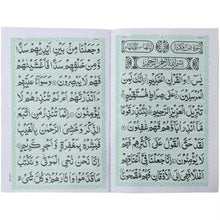 بِسْمِ اللهِ الرَّحْمٰنِ الرَّحِيْمِ
يٰسٓ وَالْقُرْاٰنِ الْحَكِيْمِ اِنَّكَ لَمِنَ
الْمُرْسَلِيْنَ عَلٰى صِرَاطٍ مُّسْتَقِيْمٍ
تَنْزِيْلَ الْعَزِيْزِ الرَّحِيْمِ لِتُنْذِرَ قَوْمًا
مَّآ اُنْذِرَ اٰبَآؤُهُمْ فَهُمْ غٰفِلُوْنَ
لَقَدْ حَقَّ الْقَوْلُ عَلٰٓى اَكْثَرِهِمْ فَهُمْ
لَا يُؤْمِنُوْنَ اِنَّا جَعَلْنَا فِيْٓ اَعْنَاقِهِمْ
اَغْلٰلًا فَهِيَ اِلَى الْاَذْقَانِ فَهُمْ مُّقْمَحُوْنَ
وَجَعَلْنَا مِنْ بَيْنِ اَيْدِيْهِمْ سَدًّا
وَّمِنْ خَلْفِهِمْ سَدًّا فَاَغْشَيْنٰهُمْ
فَهُمْ لَا يُبْصِرُوْنَ وَسَوَآءٌ عَلَيْهِمْ
ءَاَنْذَرْتَهُمْ اَمْ لَمْ تُنْذِرْهُمْ لَا
يُؤْمِنُوْنَ اِنَّمَا تُنْذِرُ مَنِ اتَّبَعَ
الذِّكْرَ وَخَشِيَ الرَّحْمٰنَ بِالْغَيْبِ
فَبَشِّرْهُ بِمَغْفِرَةٍ وَّاَجْرٍ كَرِيْمٍ
اِنَّا نَحْنُ نُحْيِ الْمَوْتٰى وَنَكْتُبُ
مَا قَدَّمُوْا وَاٰثَارَهُمْ وَكُلَّ شَيْءٍ